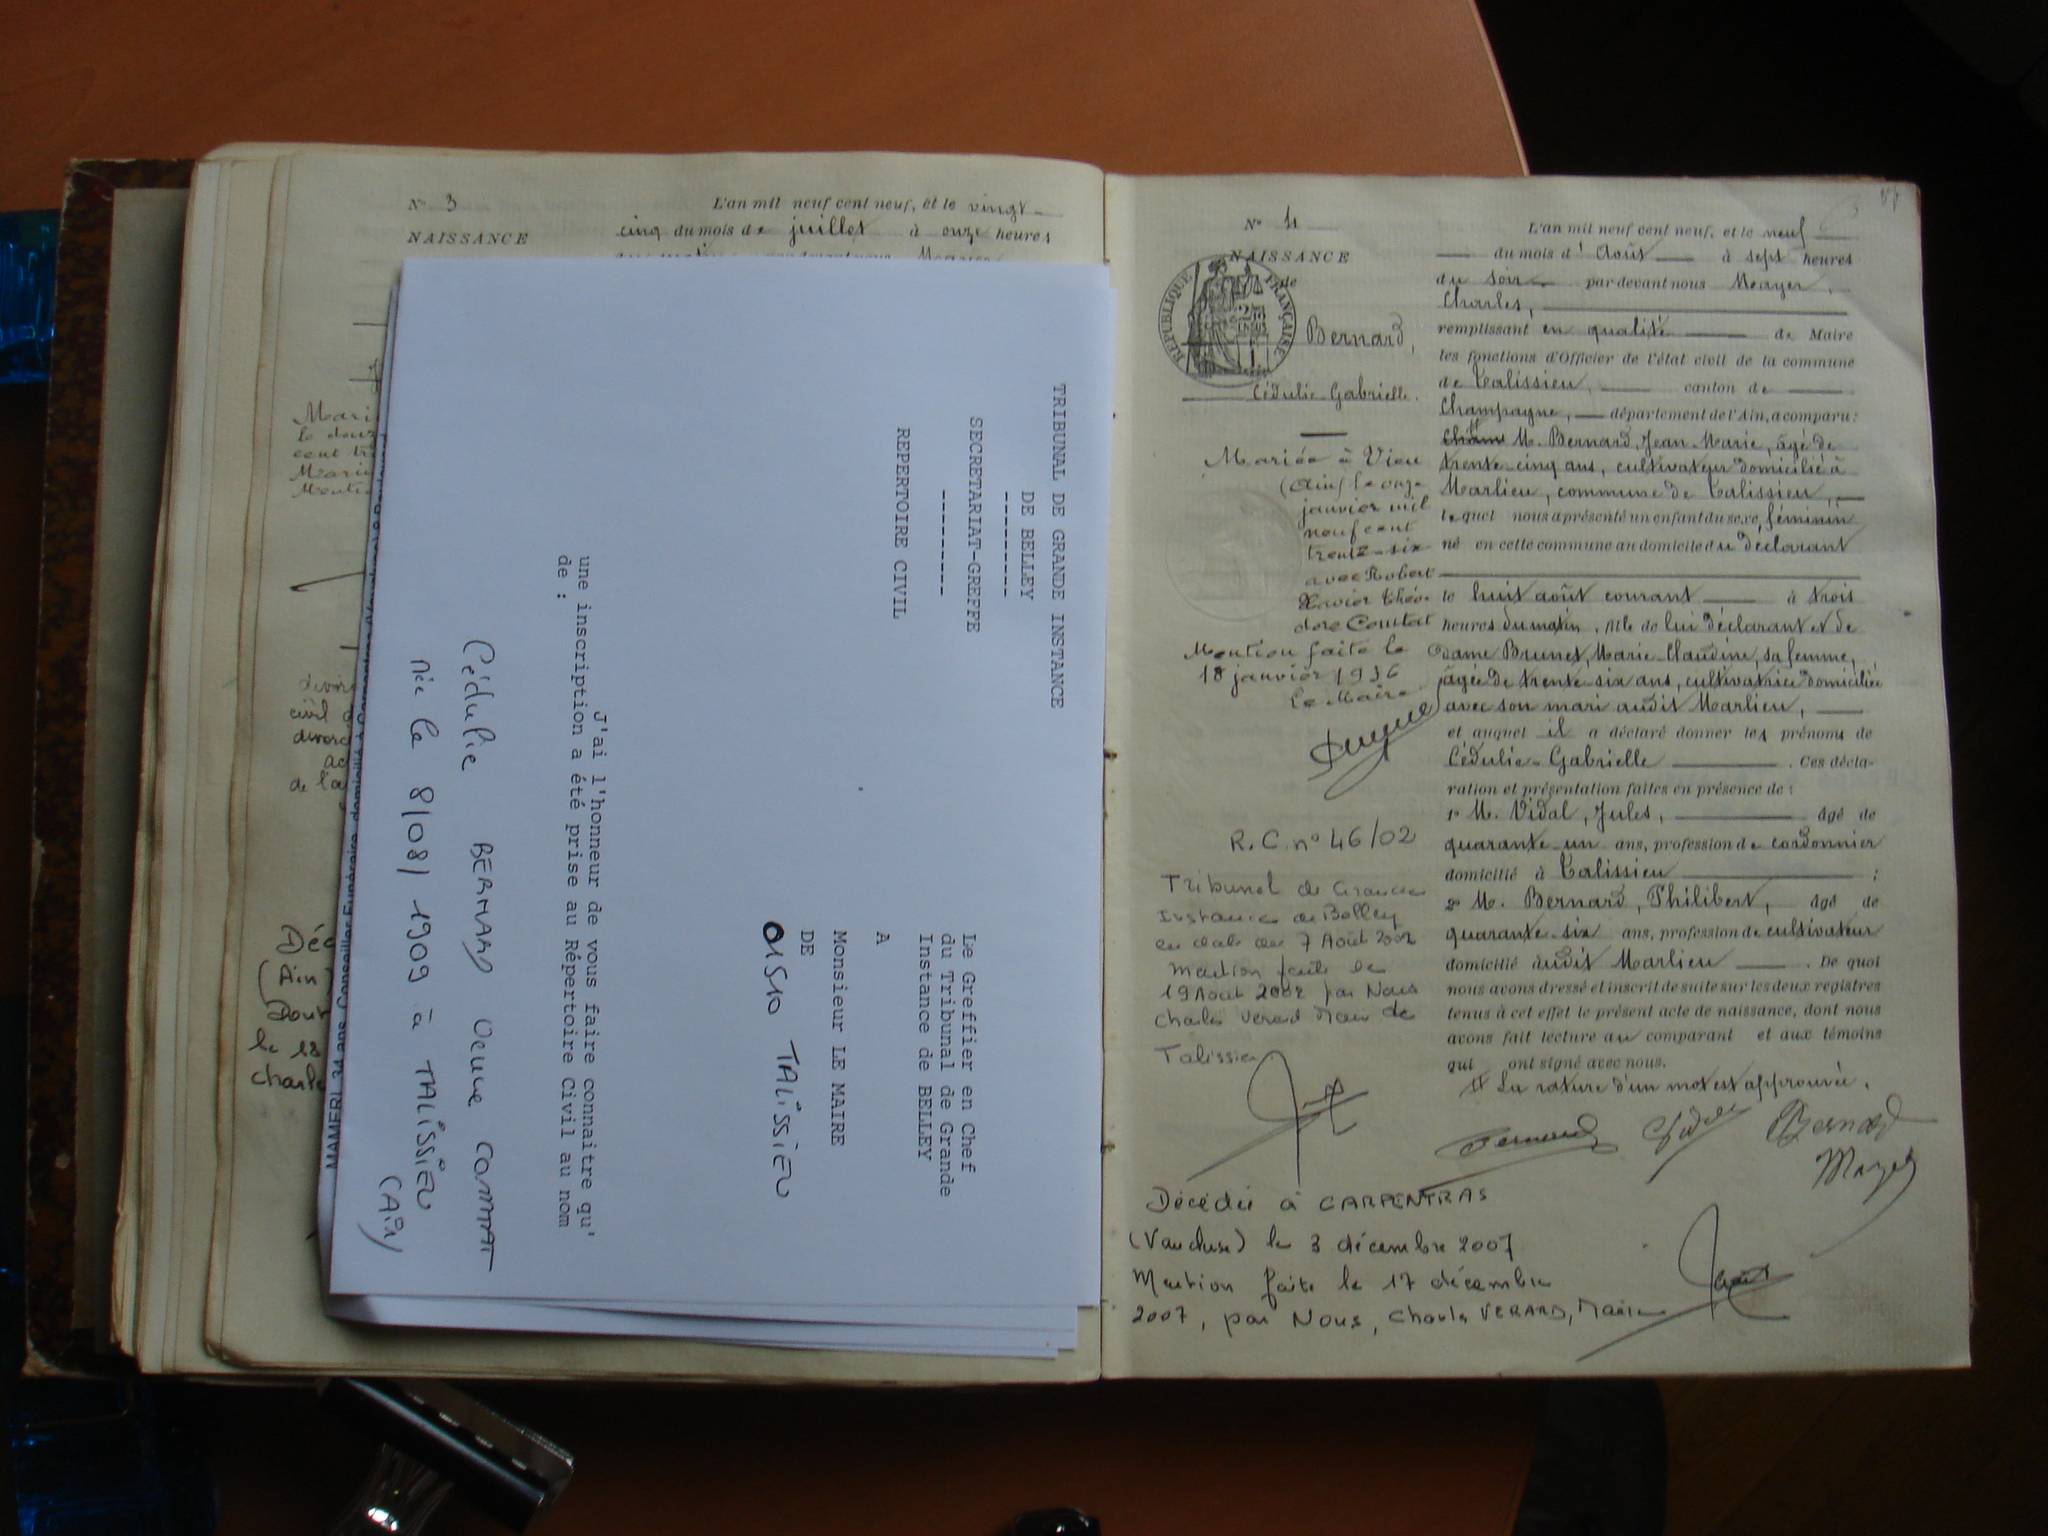 N° 3
L'an mil neuf cent neuf, et le vingt
cinq du mois de juillet à onze heures
NAISSANCE
Mari
le douz
cent tr
Marie
Menti
divor
civil
divorc
ac
de l'a
Déc
(Ain)
le 18
Charle
MAMERI, 34 ans, Conseiller Funéraire, domicilié à
TRIBUNAL DE GRANDE INSTANCE
DE BELLEY
----------
SECRETARIAT-GREFFE
----------
REPERTOIRE CIVIL
Le Greffier en Chef
du Tribunal de Grande
Instance de BELLEY
A
Monsieur LE MAIRE
DE
01510 TALISSIEU
J'ai l'honneur de vous faire connaitre qu'
une inscription a été prise au Répertoire Civil au nom
de :
Cédulie BERNARD veuve COMTAT
née le 8/08/1909 à TALISSIEU
(AIN)
N° 4
NAISSANCE
de
RÉPUBLIQUE FRANÇAISE
Bernard,
Cédulie-Gabrielle.
Mariée à Vieu
(Ain) le onze
janvier mil
neuf cent
trente-six
avec Robert
Xavier Théo-
dore Comtat
Mention faite le
18 janvier 1936
Le Maire
R.C. n° 46/02
Tribunal de Grande
Instance de Belley
en date du 7 Août 2002
Mention faite le
19 Août 2002 par Nous
Charles Verard Maire de
Talissieu
L'an mil neuf cent neuf, et le neuf
du mois d'Août à sept heures
du soir par devant nous Mayer,
Charles,
remplissant en qualité de Maire
les fonctions d'Officier de l'état civil de la commune
de Talissieu, canton de
Champagne, département de l'Ain, a comparu :
M. Bernard, Jean-Marie, âgé de
trente-cinq ans, cultivateur domicilié à
Marlieu, commune de Talissieu,
lequel nous a présenté un enfant du sexe féminin
né en cette commune au domicile du déclarant
le huit août courant à trois
heures du matin, fille de lui déclarant et de
dame Brunet, Marie-Claudine, sa femme,
âgée de trente-six ans, cultivatrice domiciliée
avec son mari audit Marlieu,
et auquel il a déclaré donner les prénoms de
Cédulie-Gabrielle. Ces décla-
ration et présentation faites en présence de :
1° M. Vidal, Jules, âgé de
quarante-un ans, profession de cordonnier
domicilié à Talissieu ;
2° M. Bernard, Philibert, âgé de
quarante-six ans, profession de cultivateur
domicilié audit Marlieu. De quoi
nous avons dressé et inscrit de suite sur les deux registres
tenus à cet effet le présent acte de naissance, dont nous
avons fait lecture au comparant et aux témoins
qui ont signé avec nous.
La rature d'un mot est approuvée.
Bernard Vidal Bernard
Mayer
Décédée à CARPENTRAS
(Vaucluse) le 3 décembre 2007
Mention faite le 17 décembre
2007, par Nous, Charles VERARD, Maire